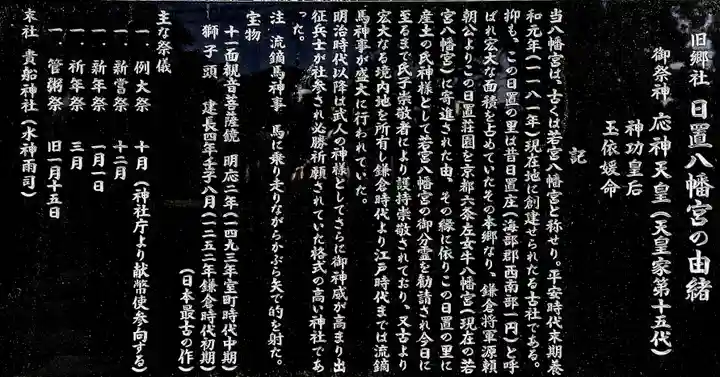 旧郷社 日置八幡宮の由緒
御祭神 応神天皇(天皇家第十五代)
神功皇后
玉依媛命
記
当八幡宮は、古くは若宮八幡宮と称せり。平安時代末期養
和元年(一一八一年)現在地に創建せられたる古社である。
抑も、この日置の里は昔日置庄(海部郡西南部一円)と呼
ばれ宏大な面積を占めていたその本郷なり、鎌倉将軍源頼
朝公よりこの日置荘園を京都六条左女牛八幡宮(現在の若
宮八幡宮)に寄進された由、その縁に依りこの日置の里に
産土の氏神様として若宮八幡宮の御分霊を勧請され今日に
至るまで氏子崇敬者により護持崇敬されており、又古より
宏大なる境内地を所有し鎌倉時代より江戸時代までは流鏑
馬神事が盛大に行われていた。
明治時代以降は武人の神様としてさらに御神威が高まり出
征兵士が社参され必勝祈願されていた格式の高い神社であ
った。
注 流鏑馬神事 馬に乗り走りながらかぶら矢で的を射た。
宝物
十一面観音菩薩鏡 明応二年(一四九三年室町時代中期)
獅子頭 建長四年壬子八月(一二五二年鎌倉時代初期)
(日本最古の作)
主な祭儀
一、例大祭 十月(神社庁より献幣使参向する)
一、新嘗祭 十二月
一、新年祭 一月一日
一、祈年祭 三月
一、管粥祭 旧一月十五日
末社 貴船神社(水神雨司)